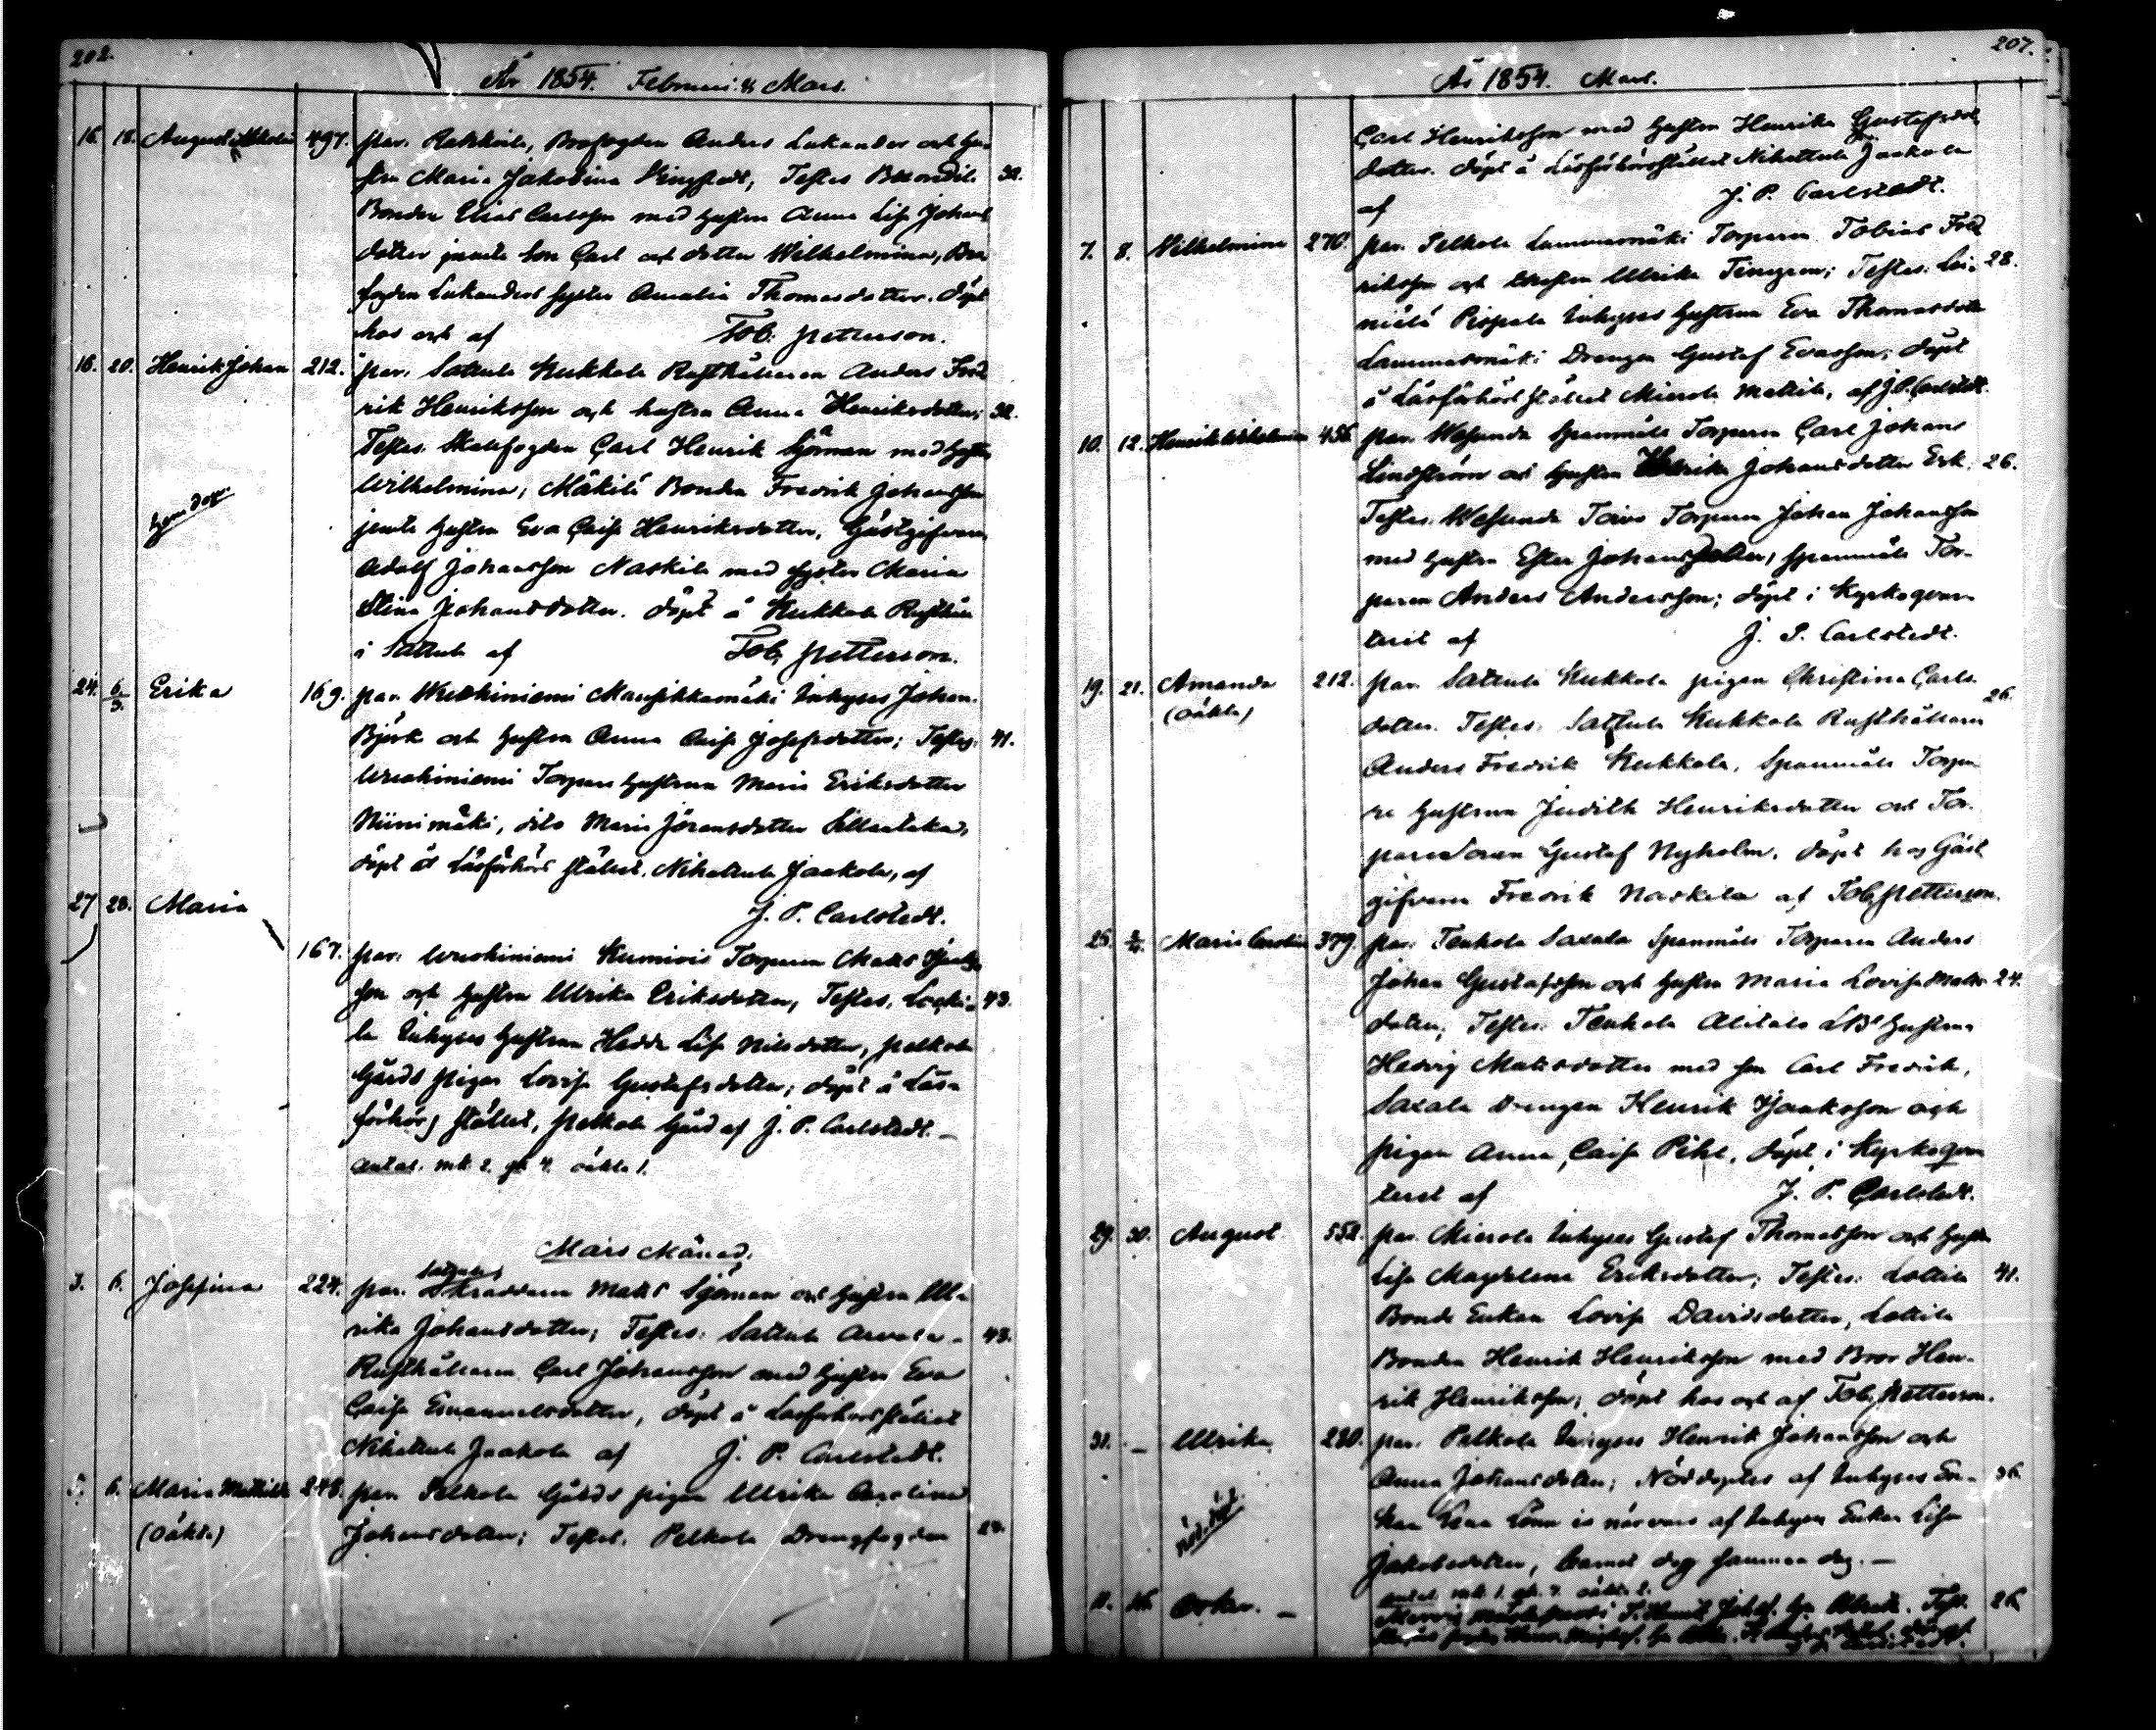 202.
År 1854. Februari & Mars.
16. 18. August 497. par. Brofogden Anders Lukander och hu-
stru Maria Jakobina Testes 32.
Bonden Elias Carlsson med hustru Anna Lisa Johans
dotter jemte Son Carl och dotter Wilhelmina, Bro
fogden Lukanders syster Amalia Thomasdotter. döpt
hos och af Tob. Petterson.
16. 20. Henrik Johan 212. par. Sattula Kukkola Rusthållaren Anders Fred
rik Henriksson och hustru Anna Henriksdotter; 32.
Testes. Carl Henrik Sjöman med hustru
Wilhelmina, Mäkilä Bonden Fredrik Johansson
jemte hustru Eva Caisa Henriksdotter, Gästgifvaren
Adolf Johansson Naskila med syster Maria
Stina Johansdotter. döpt å Kukkola Rusthåll
i Sattula af Tob. Petterson.
24. 6/3. Erika 169. par. Wuohiniemi Mansikkamäki Inhyses Johan
Björk och hustru Anna Caisa Josefsdotter; Testes: 41.
Wuohiniemi Torpare hustrun Maria Eriksdotter
Niinimäki, dito Maria Jöransdotter
döpt å Läsförhörs stället, Nihattula Jaakola, af
J. P. Carlstedt.
27 28. Maria
167. par. Wuohiniemi Torparen Matts
son och hustru Ulrika Eriksdotter, Testes. 43.
la Inhyses hustrun Hedda Lisa Nilsdotter, Pelkola
Gårds pigan Lovisa Gustafsdotter; döpt å Läs-
förhörs stället, Pelkola Gård af J. P. Carlstedt. —
Antal. mk. 2. qk 4. oäkta 1.
Mars Månad.
3. 6. Josefina 224. par. Sattula Skraddaren Matts Sjöman och hustru Ul-
rika Johansdotter; Testes: Sattula Arvola 43.
Rusthållaren Carl Johansson med hustru Eva
Caisa Emanuelsdotter, döpt å Läsförhörsstället
Nihattula Jaakola af J. P. Carlstedt.
5. 6. Maria Mathilda 248. par. Pelkola Gårds pigan Ulrika Carolina
(oäkta) Johansdotter; Testes. Pelkola Drengfogden
207.
År 1854. Mars.
Carl Henriksson med hustru Henrika Gustafs
dotter. döpt å Läsförhörsstället Nihattula Jaakola
af J. P. Carlstedt.
7. 8. Wilhelmina 270. par. Pelkola Lammasmäki Torparen Tobias Fred
riksson och hustru Ulrika Tenngren; Testes: Lei- 28.
niälä Pispala Inhyses hustrun Eva Thomasdotter
Lammasmäki Drengen Gustaf Evasson; döpt
å Läsförhörs stället Mierola Mattila, af J. P. Carlstedt.
10. 12. Henrik Wilhelm 456 par. Wesunda Spanmåls Torparen Carl Johans
Lindström och hustru Ulrika Johansdotter Ek. 26.
Testes. Wesunda Toivo Torparen Johan Johansson
med hustru Ester Johansdotter, Spanmåls Tor-
paren Anders Andersson; döpt i Kyrkoqvar-
teret af J. P. Carlstedt.
19. 21. Amanda 212. par. Sattula Kukkola pigan Christina Carls
(oäkta) dotter. Testes. Sattula Kukkola Rusthållaren 26.
Anders Fredrik Kukkola, Spanmåls Torpa
re hustrun Judith Henriksdotter och Tor-
paresonen Gustaf Nyholm. döpt hos Gäst
gifvaren Fredrik Naskila af Tob. Petterson.
25. 2/4. Maria Carolina 379. par. Tenhola Saxala Spanmåls Torparen Anders
Johan Gustafsson och hustru Maria Lovisa Matts 24.
dotter; Testes: Tenhola Alitalo hustrun
Hedvig Mattsdotter med son Carl Fredrik,
Saxala Drengen Henrik Isaksson och
pigan Anna Caisa Pihl, döpt i Kyrkoqvar
teret af J. P. Carlstedt.
29. 30. August 552. par. Mierola Inhyses Gustaf Thomasson och hustru
Lisa Magdalena Eriksdotter; Testes: Lottila 41.
Bonde Enkan Lovisa Davidsdotter, Lottila
Bonden Henrik Henriksson med Bror Hen-
rik Henriksson; döpt hos och af Tob. Petterson.
31. — Ulrika 280. par. Pelkola Inhyses Henrik Johansson och
Anna Johansdotter; Nöddöptes af Inhyses En- 36.
kan Lena Lönn i närvaro af Inhyses Enkan Lisa
Jakobsdotter, Barnet dog samma dag. —
Antal mk 1. qk. 7. oäkta 2.
11. Oskar. — 26